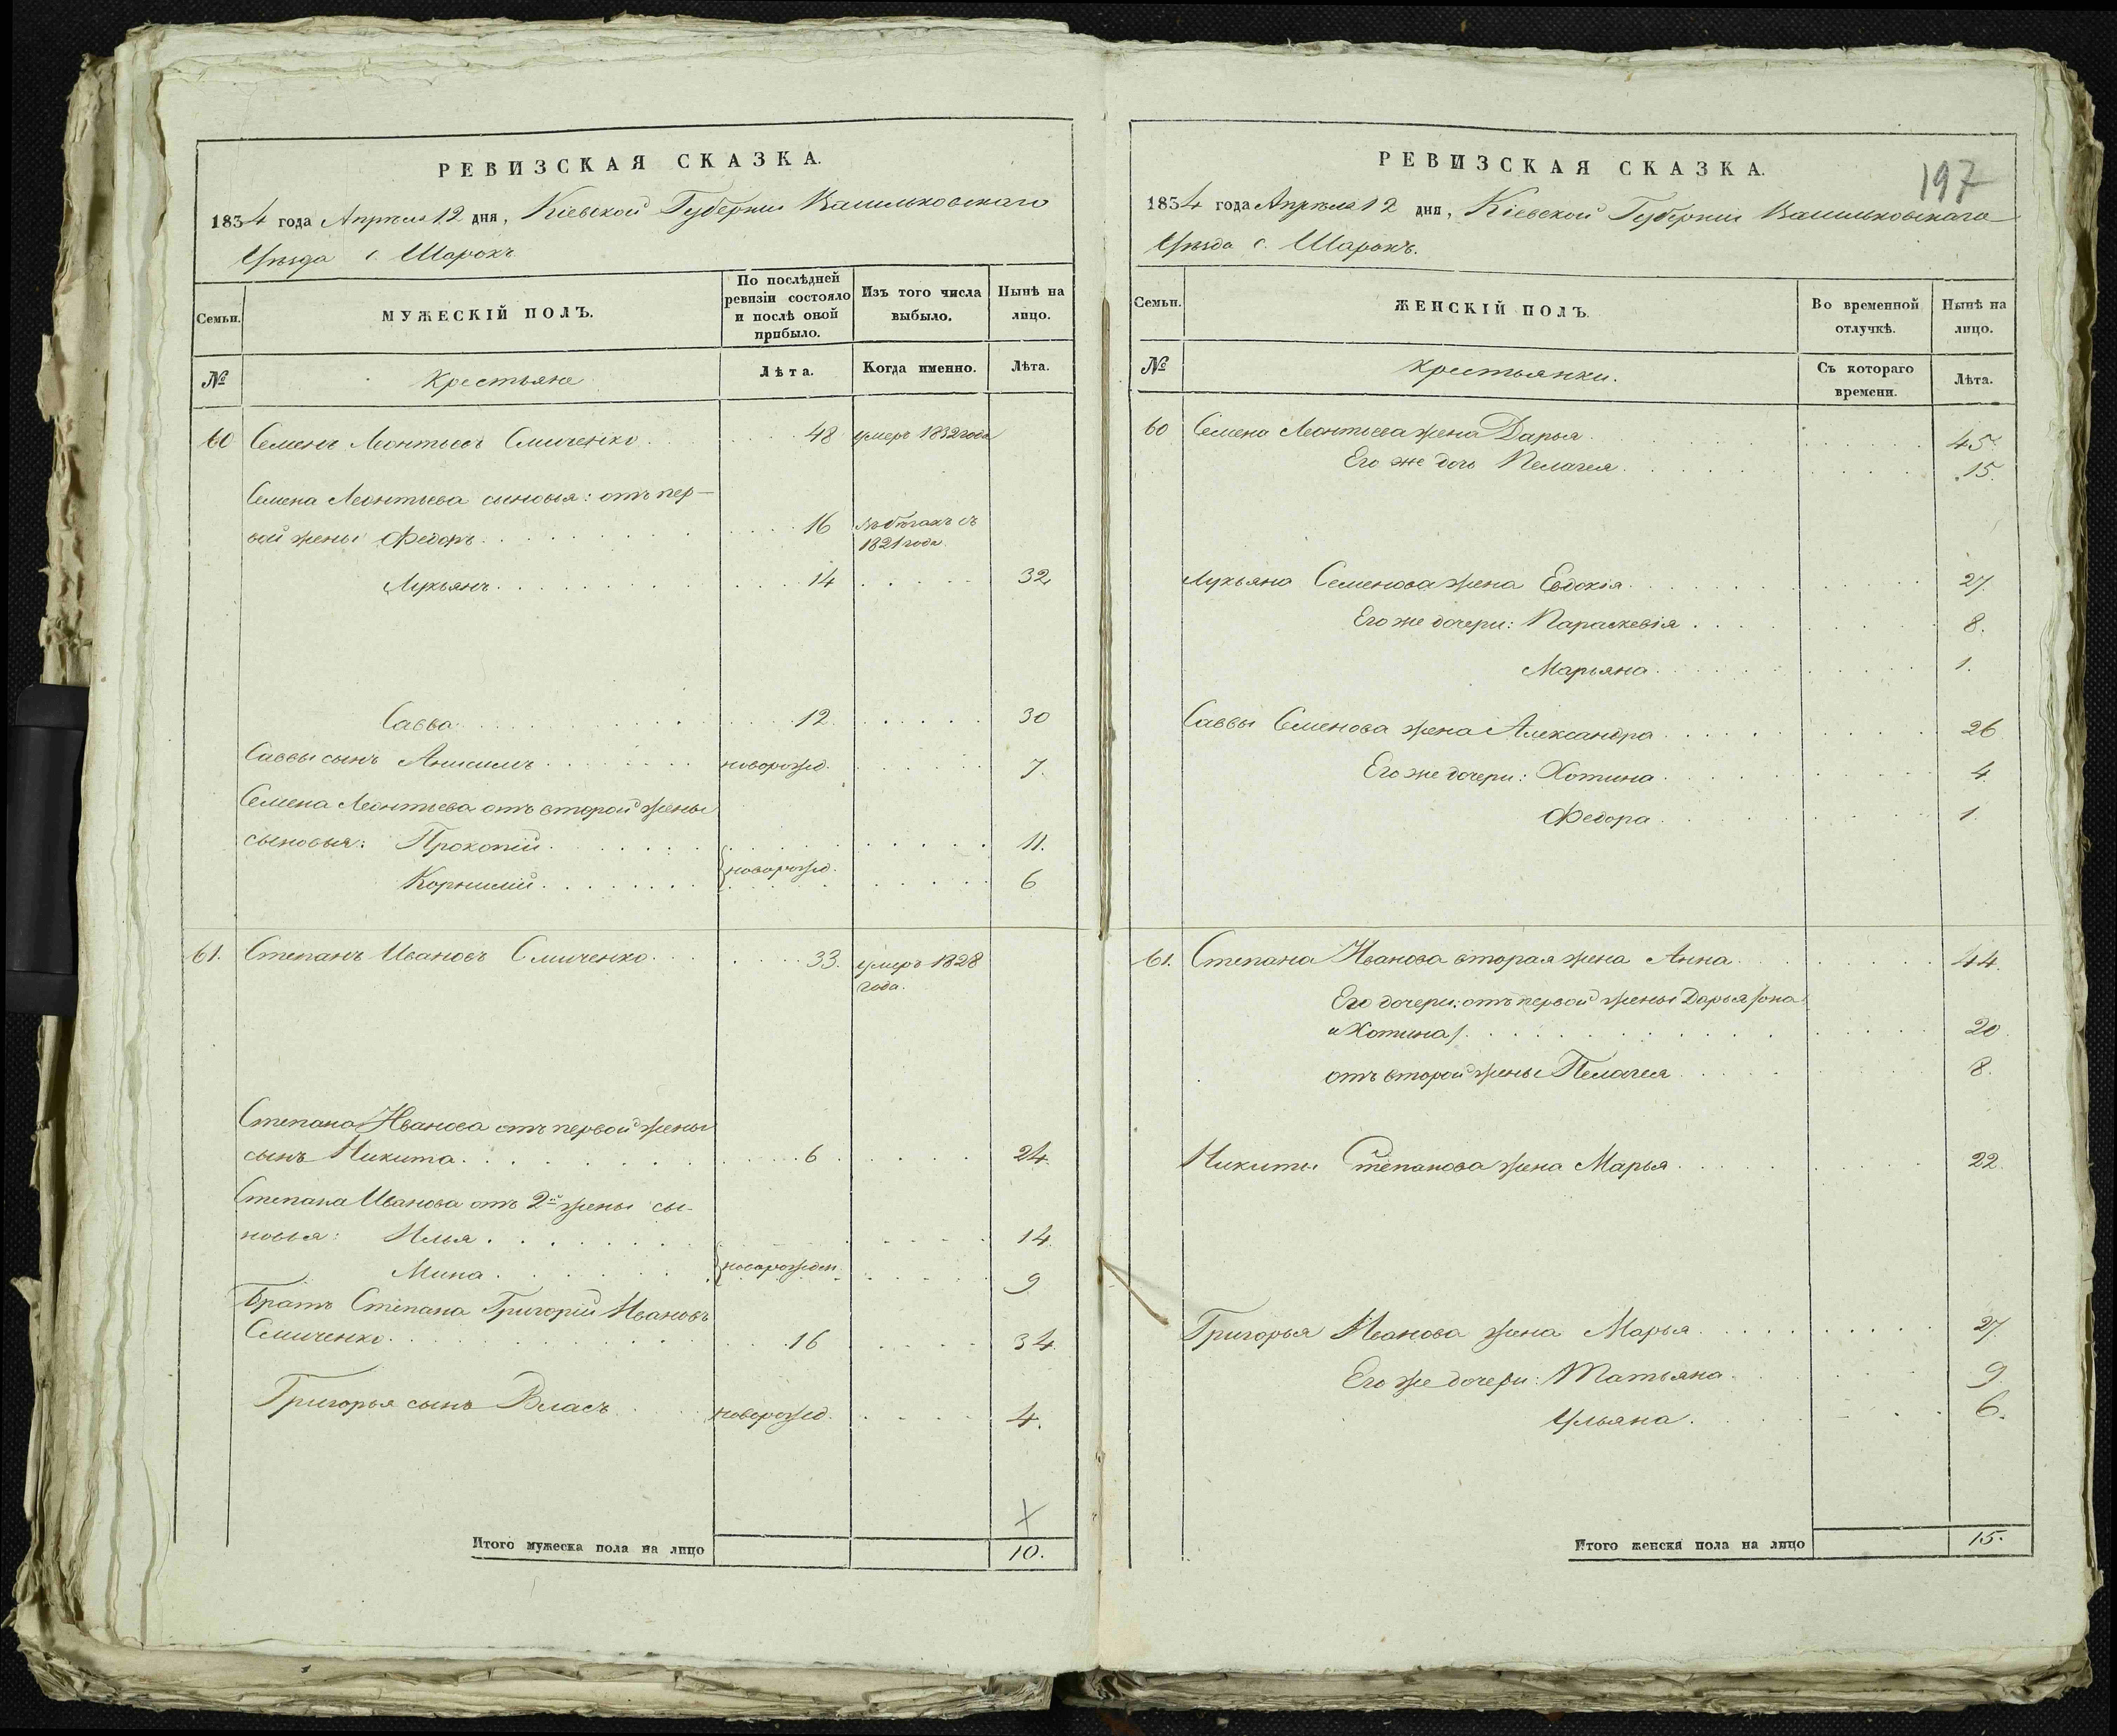 РЕВИЗСКАЯ СКАЗКА.
1834 года Апреля 12 дня, Кіевской Губерніи Васильковскаго
Уѣзда с. Шарокъ
Семьи.
МУЖЕСКІЙ ПОЛЪ.
По послѣдней ревизіи состояло и послѣ оной прибыло.
Изъ того числа выбыло.
Нынѣ на лицо.
№
Крестьяне
Лѣта.
Когда именно.
Лѣта.
60 Семенъ Леонтьевъ Смиченко 48 умеръ 1832 года
Семена Леонтьева сыновья: отъ пер-
вой жены Федоръ 16 въ бѣгахъ съ
1821 года
Лукьянъ 14 32
Савва 12 30
Саввы сынъ Анисимъ новорожд. 7.
Семена Леонтьева отъ второй жены
сыновья: Прокопій 11.
новорожд.
Корнилій 6
61. Степанъ Ивановъ Смиченко 33. умеръ 1828
года.
Степана Иванова отъ первой жены
сынъ Никита 6 24.
Степана Иванова отъ 2й жены сы-
новья: Илья 14
новорожден
Мина 9
Братъ Степана Григорій Ивановъ
Смиченко 16 34
Григорья сынъ Власъ новорожд. 4.
Итого мужеска пола на лицо 10.
197
РЕВИЗСКАЯ СКАЗКА.
1834 года Апрѣля 12 дня, Кіевской Губерніи Васильковскаго
Уѣзда с. Шарокъ.
Семьи.
ЖЕНСКІЙ ПОЛЪ.
Во временной отлучкѣ.
Нынѣ на лицо.
№
Крестьянки.
Съ котораго времени.
Лѣта.
60 Семена Леонтьева жена Дарья 45.
Его же дочь Пелагея 15.
Лукьяна Семенова жена Евдокія 27.
Его же дочери: Параскевія 8.
Марьяна 1.
Саввы Семенова жена Александра 26
Его же дочери: Хотина 4
Федора 1.
61. Степана Иванова вторая жена Анна 44.
Его дочери: отъ первой жены Дарья /она
и Хотина/ 20.
отъ второй жены Пелагея 8.
Никиты Степанова жена Марья 22.
Григорья Иванова жена Марья 27.
Его же дочери: Татьяна 9
Ульяна 6.
Итого женска пола на лицо 15.